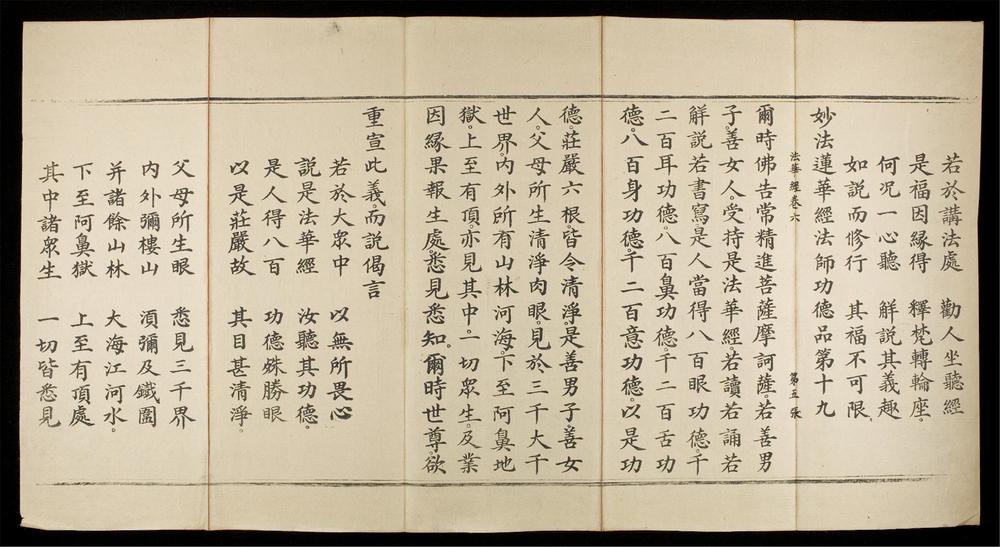 若於講法處　勸人坐聽經
是福因緣得　釋梵轉輪座。
何況一心聽　解説其義趣
如説而修行　其福不可限。
妙法蓮華經法師功德品第十九
法華經卷六　第五張
爾時佛告常精進菩薩摩訶薩。若善男
子。善女人。受持是法華經。若讀若誦若
解説若書寫。是人當得八百眼功德。千
二百耳功德。八百鼻功德。千二百舌功
德。八百身功德。千二百意功德。以是功
德。莊嚴六根。皆令清淨。是善男子。善女
人。父母所生清淨肉眼。見於三千大千
世界。内外所有山林河海。下至阿鼻地
獄。上至有頂。亦見其中。一切眾生。及業
因緣果報生處。悉見悉知。爾時世尊。欲
重宣此義。而説偈言
若於大眾中　以無所畏心
説是法華經　汝聽其功德。
是人得八百　功德殊勝眼
以是莊嚴故　其目甚清淨。
父母所生眼　悉見三千界
内外彌樓山　須彌及鐵圍
并諸餘山林　大海江河水。
下至阿鼻獄　上至有頂處
其中諸眾生　一切皆悉見